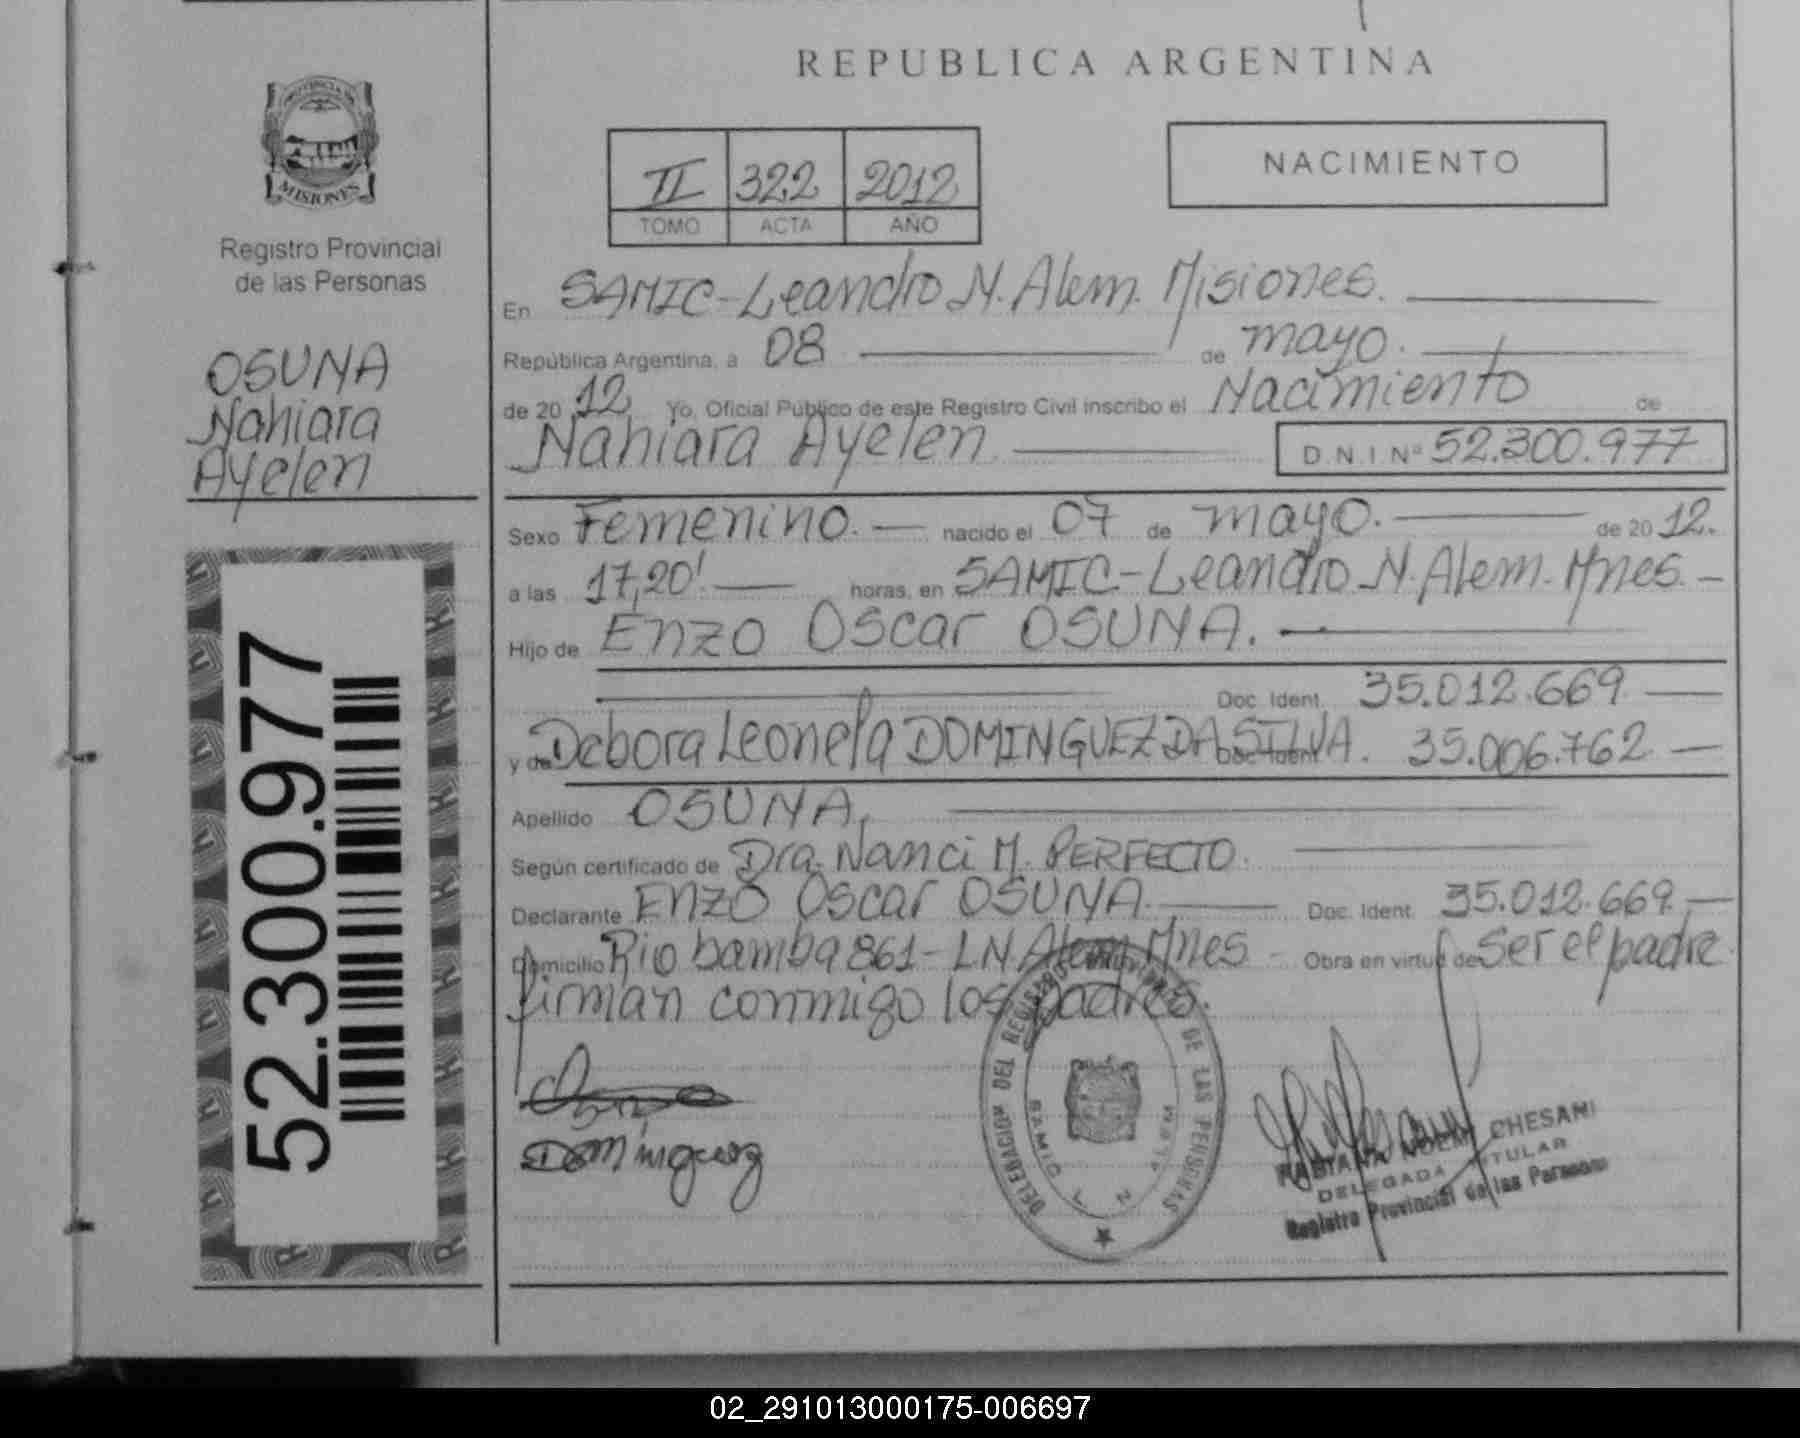 REPUBLICA ARGENTINA
PROVINCIA DE
MISIONES
Registro Provincial
de las Personas
OSUNA
Nahiara
Ayelen
52.300.977
II 322 2012
TOMO ACTA AÑO
NACIMIENTO
En SAMIC-Leandro N. Alem. Misiones.
República Argentina, a 08 de mayo.
de 20 12 Yo, Oficial Público de este Registro Civil inscribo el Nacimiento de
Nahiara Ayelen. D.N.I. Nº 52.300.977
Sexo Femenino. nacido el 07 de mayo. de 20 12.
a las 17,20' horas, en SAMIC-Leandro N. Alem. Mnes.
Hijo de Enzo Oscar OSUNA.
Doc. Ident. 35.012.669
y de Debora Leonela DOMINGUEZ DA SILVA. Doc. Ident. 35.006.762
Apellido OSUNA.
Según certificado de Dra. Nanci M. PERFECTO.
Declarante Enzo Oscar OSUNA. Doc. Ident. 35.012.669
Domicilio Rio bamba 861 - LN. Alem Mnes - Obra en virtud de Ser el padre.
firman conmigo los padres.
Dominguez
DELEGACION DEL REGISTRO PROVINCIAL DE LAS PERSONAS
SAMIC L N ALEM
FABIANA NOEMI CHESANI
DELEGADA TITULAR
Registro Provincial de las Personas
02_291013000175-006697